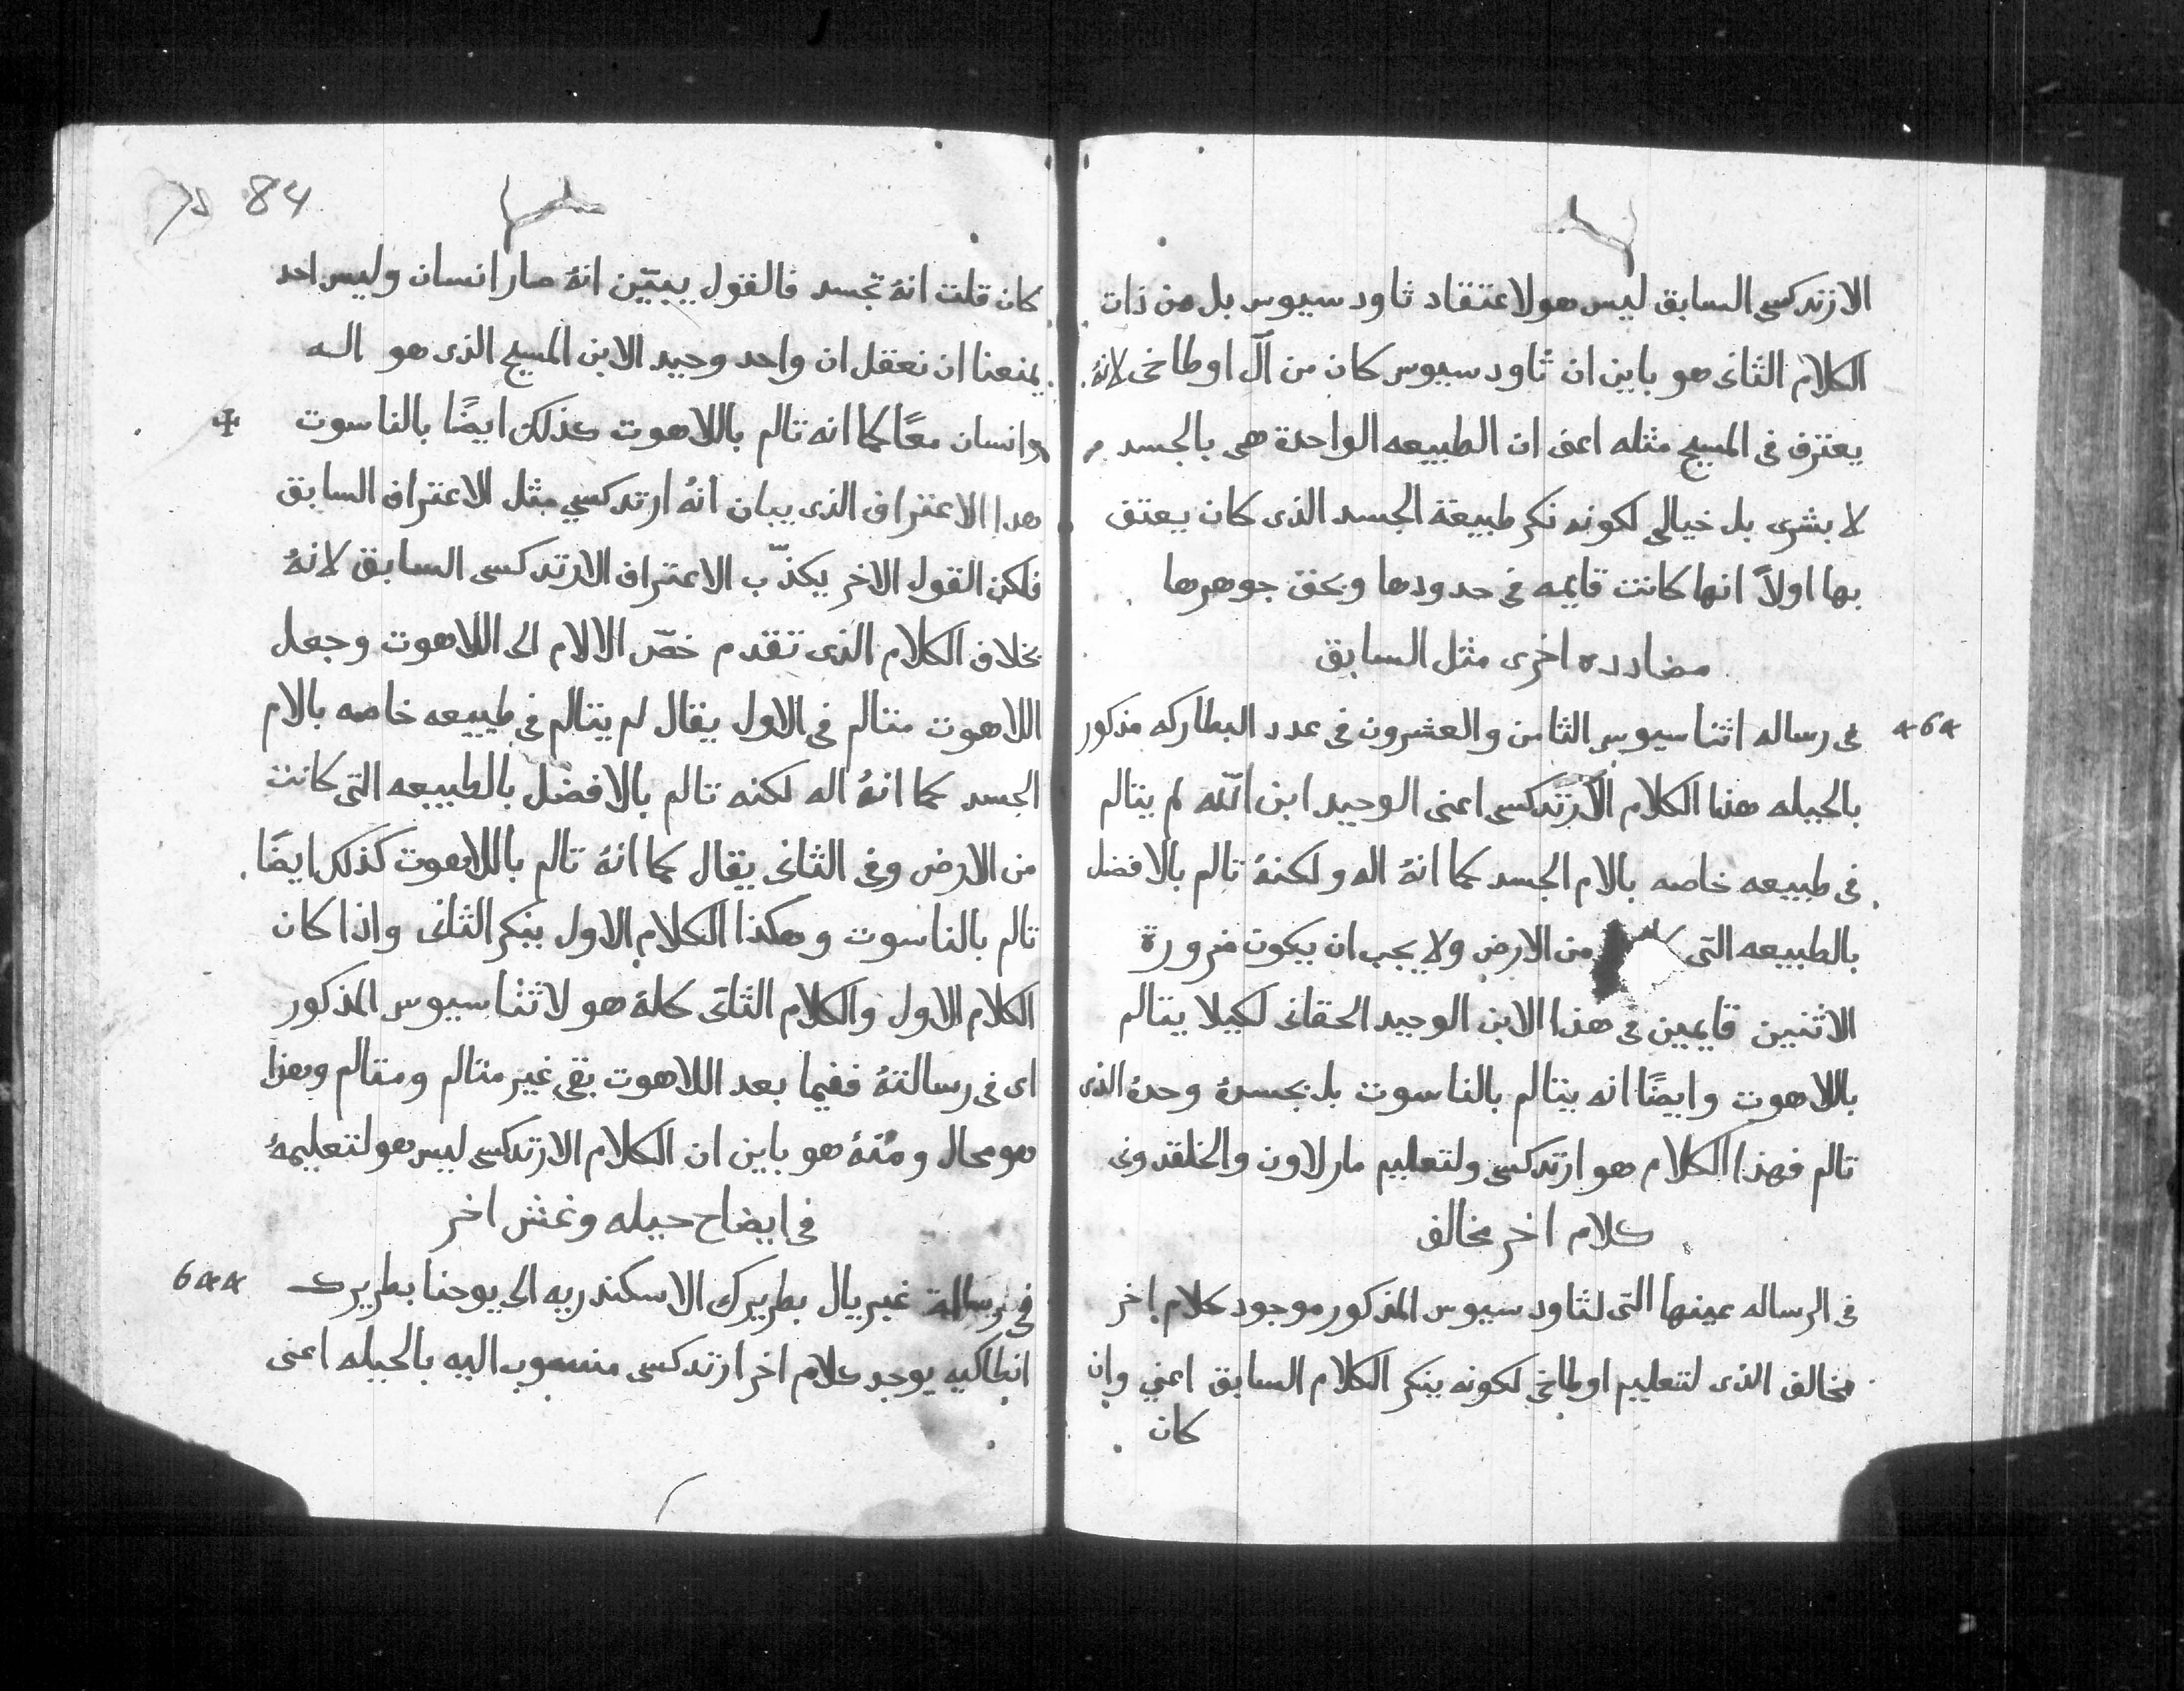 الارتدكسي السابق ليس هو لاعتقاد تاودسيوس بل من ذات
الكلام الثانى هو باين ان تاودسيوس كان من آل اوطاخى لانهُ
يعترف فى المسيح مثله اعنى ان الطبيعه الواحدة هى بالجسد
لا بشرى بل خيالي لكونه نكر طبيعة الجسد الذى كان يعتق
بها اولاً انها كانت قايمه فى حدودها وبحق جوهرها
مضادده اخرى مثل السابق
فى رساله اثناسيوس الثامن والعشرون فى عدد البطاركه مذكور
بالحيله هذا الكلام الارتدكسى اعنى الوحيد ابن الله لم يتالم
فى طبيعه خاصه بالام الجسد كما انهُ اله ولكنهُ تالم بالافضل
بالطبيعه التى من الارض ولا يجب ان يكون ضرورة
الاثنين قايمين فى هذا الابن الوحيد الحقانى لكيلا يتالم
باللاهوت وايضًا انه يتالم بالناسوت بل بجسدهُ وحدهُ الذى
تالم فهذا الكلام هو ارتدكسى ولتعليم مار لاون والخلقدونى
كلام اخر مخالف
فى الرساله عينها التى لتاودسيوس المذكور موجود كلام اخر
مخالف الذى لتعليم اوطاخى لكونه ينكر الكلام السابق اعني وان
كان
84
كان قلت انهُ تجسد فالقول يبيّن انهُ صار انسان وليس احد
يمنعنا ان نعقل ان واحد وحيد الابن المسيح الذى هو اله
وانسان معًا كما انه تالم باللاهوت كذلك ايضًا بالناسوت
هدا الاعتراف الذى يبان انهُ ارتدكسي مثل الاعتراف السابق
فلكن القول الاخر يكذّب الاعتراف الارتدكسى السابق لانهُ
بخلاف الكلام الذى تقدم خصّ الالام الى اللاهوت وجعل
اللاهوت متالم فى الاول يقال لم يتالم فى طبيعه خاصه بالام
الجسد كما انهُ اله لكنه تالم بالافضل بالطبيعه التى كانت
من الارض وفى الثانى يقال كما انهُ تالم باللاهوت كذلك ايضًا
تالم بالناسوت وهكذا الكلام الاول ينكر الثانى واذا كان
الكلام الاول والكلام الثانى كلهُ هو لاثناسيوس المذكور
اى فى رسالتهُ ففيما بعد اللاهوت بقى غير متالم ومتالم وهذا
هو محال ومنهُ هو باين ان الكلام الارتدكسى ليس هو لتعليمهُ
فى ايضاح حيله وغش اخر
فى رسالة غبريال بطريرك الاسكندريه الى يوحنا بطريرك
انطاكيه يوجد كلام اخر ارتدكسى منسوب اليه بالحيله اعنى